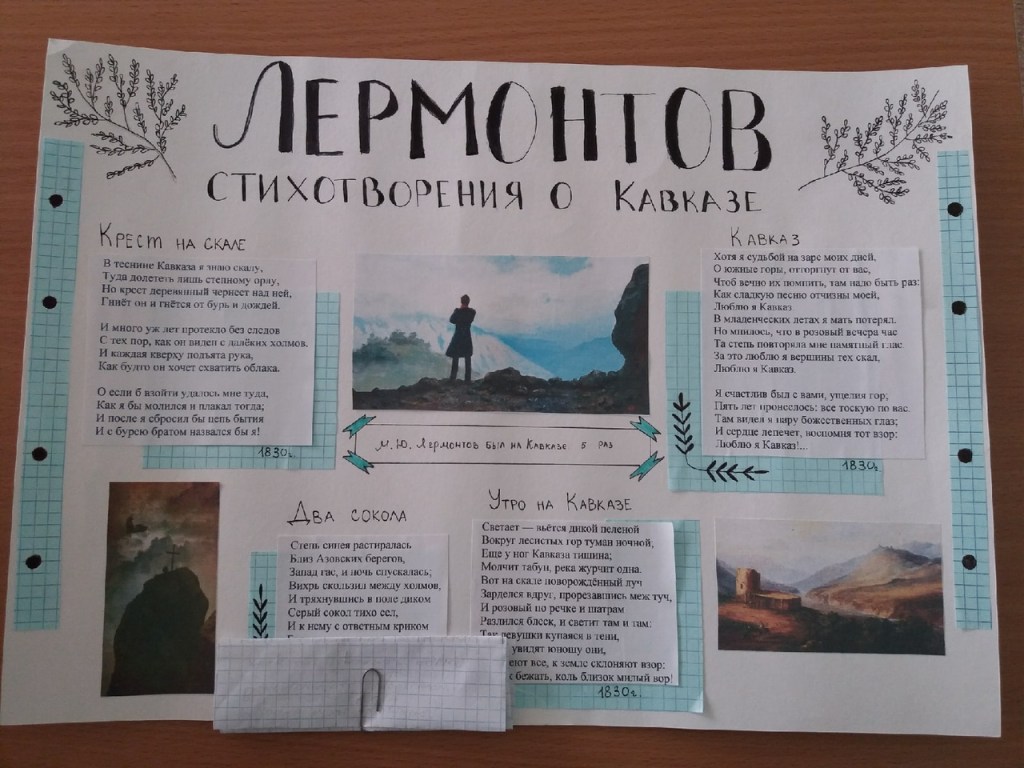 ЛЕРМОНТОВ
СТИХОТВОРЕНИЯ О КАВКАЗЕ
КРЕСТ НА СКАЛЕ
В теснине Кавказа я знаю скалу,
Туда долететь лишь степному орлу,
Но крест деревянный чернеет над ней,
Гниёт он и гнётся от бурь и дождей.
И много уж лет протекло без следов
С тех пор, как он виден с далёких холмов.
И каждая кверху подъята рука,
Как будто он хочет схватить облака.
О если б взойти удалось мне туда,
Как я бы молился и плакал тогда;
И после я сбросил бы цепь бытия
И с бурею братом назвался бы я!
1830г.
М.Ю. ЛЕРМОНТОВ БЫЛ НА КАВКАЗЕ 5 РАЗ
КАВКАЗ
Хотя я судьбой на заре моих дней,
О южные горы, отторгнут от вас,
Чтоб вечно их помнить, там надо быть раз:
Как сладкую песню отчизны моей,
Люблю я Кавказ.
В младенческих летах я мать потерял.
Но мнилось, что в розовый вечера час
Та степь повторяла мне памятный глас.
За это люблю я вершины тех скал,
Люблю я Кавказ.
Я счастлив был с вами, ущелия гор;
Пять лет пронеслось: все тоскую по вас.
Там видел я пару божественных глаз;
И сердце лепечет, воспомня тот взор:
Люблю я Кавказ!...
1830г.
ДВА СОКОЛА
Степь синея растиралась
Близ Азовских берегов,
Запад гас, и ночь спускалась;
Вихрь скользил между холмов,
И тряхнувшись в поле диком
Серый сокол тихо сел,
И к нему с ответным криком
УТРО НА КАВКАЗЕ
Светает — вьётся дикой пеленой
Вокруг лесистых гор туман ночной;
Еще у ног Кавказа тишина;
Молчит табун, река журчит одна.
Вот на скале новорождённый луч
Зарделся вдруг, прорезавшись меж туч,
И розовый по речке и шатрам
Разлился блеск, и светит там и там:
Так девушки купаяся в тени,
увидят юношу они,
все, к земле склоняют взор:
бежать, коль близок милый вор!
1830г.